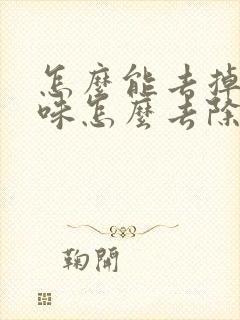 怎麼能去掉
味怎麼去除
鞠開